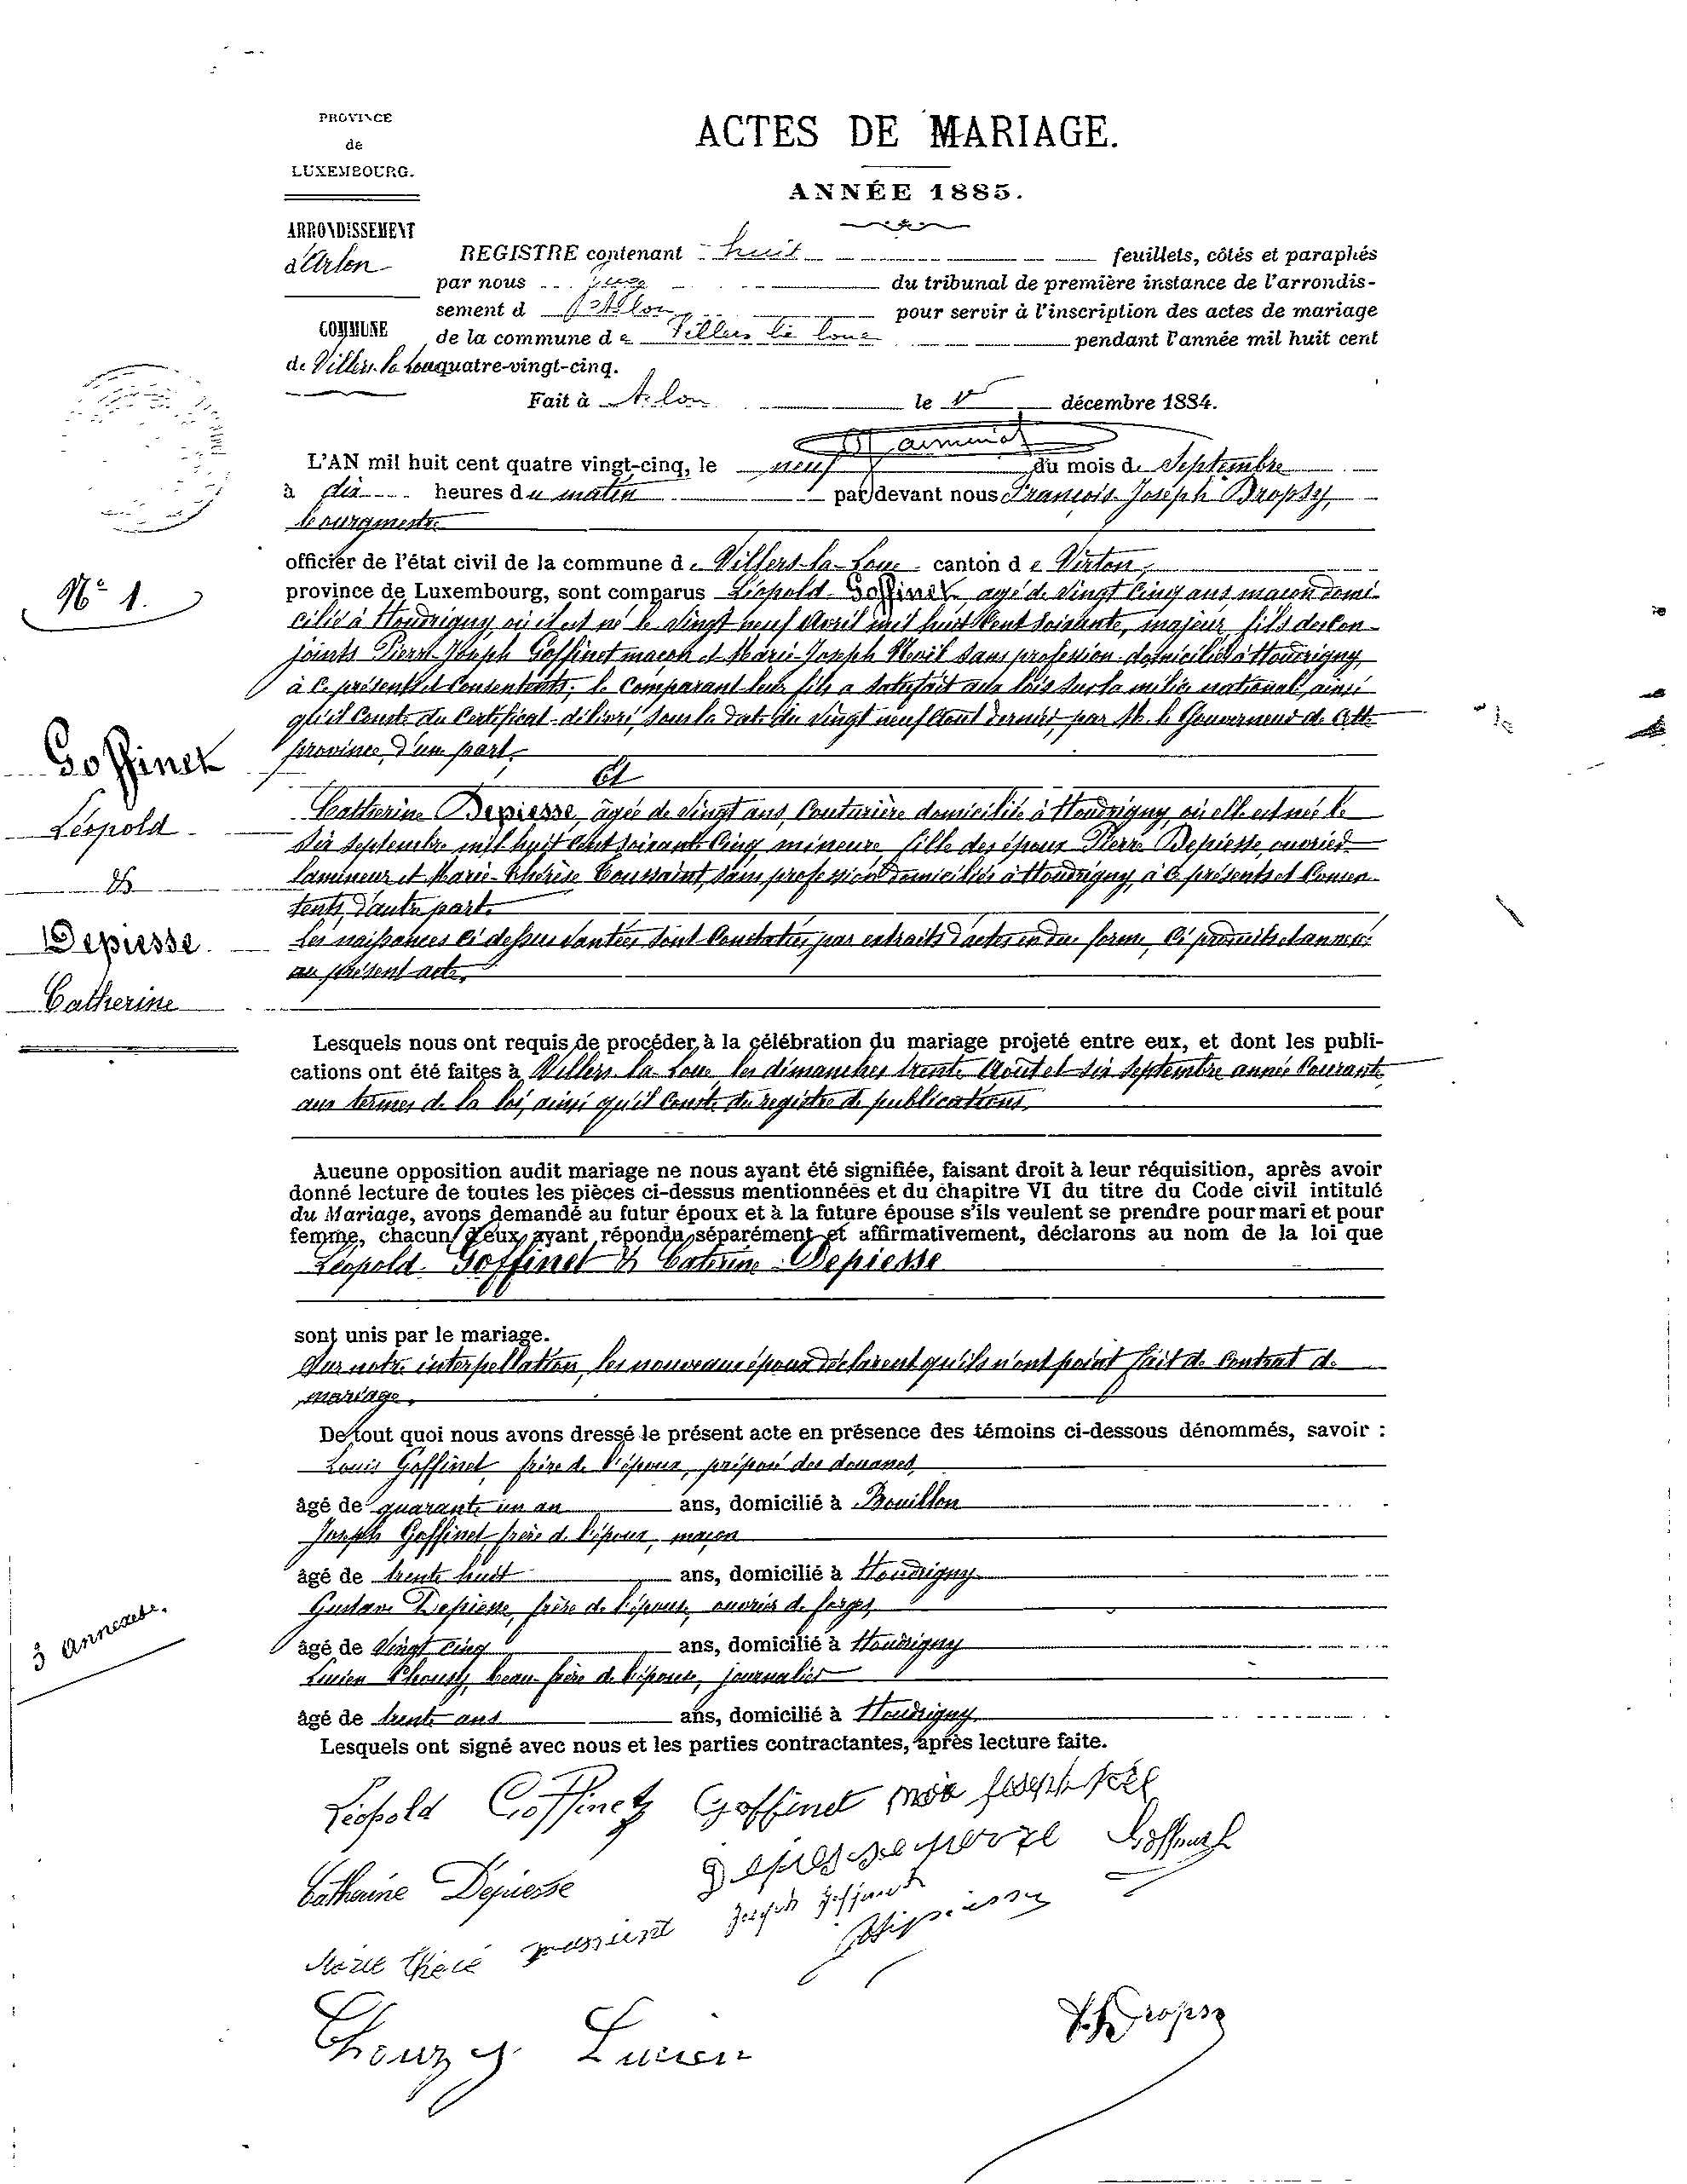 PROVINCE
de
LUXEMBOURG.
ARRONDISSEMENT
d'Arlon
COMMUNE
de Villers-la-Loue
ACTES DE MARIAGE.
ANNÉE 1885.
REGISTRE contenant huit feuillets, côtés et paraphés
par nous juge du tribunal de première instance de l'arrondis-
sement d'Arlon pour servir à l'inscription des actes de mariage
de la commune de Villers la loue pendant l'année mil huit cent
quatre-vingt-cinq.
Fait à Arlon le décembre 1884.
L'AN mil huit cent quatre vingt-cinq, le neuf du mois de Septembre
à dix heures du matin par devant nous François Joseph Dropsy,
bourgmestre
officier de l'état civil de la commune de Villers-la-Loue canton de Virton,
province de Luxembourg, sont comparus Léopold Goffinet agé de vingt cinq ans maçon domi-
cilié à Houdrigny, où il est né le vingt neuf Avril mil huit cent soixante, majeur, fils des con-
joints Pierre-Joseph Goffinet maçon et Marie-Joseph sans profession domiciliés à Houdrigny,
à ce présents et consentants; le comparant leur fils a satisfait aux lois sur la milice nationale, ainsi
qu'il conste du certificat délivré sous la date du vingt neuf Août dernier, par M. le Gouverneur de cette
province, d'une part.
Et
Catherine Depiesse, âgée de vingt ans, couturière domiciliée à Houdrigny, où elle est née le
six septembre mil huit cent soixante cinq, mineure, fille des époux Pierre Depiesse, ouvrier
lamineur et Marie-Thérèse Toussaint, sans profession domiciliés à Houdrigny, à ce présents et consen-
tents, d'autre part.
Les naissances ci dessus vantées sont constatées par extraits d'actes en due forme, ci produits et annexés
au présent acte.
Lesquels nous ont requis de procéder à la célébration du mariage projeté entre eux, et dont les publi-
cations ont été faites à Villers-la-Loue, les dimanches trente Août et six Septembre année courante,
aux termes de la loi, ainsi qu'il conste du registre de publications.
Aucune opposition audit mariage ne nous ayant été signifiée, faisant droit à leur réquisition, après avoir
donné lecture de toutes les pièces ci-dessus mentionnées et du chapitre VI du titre du Code civil intitulé
du Mariage, avons demandé au futur époux et à la future épouse s'ils veulent se prendre pour mari et pour
femme, chacun d'eux ayant répondu séparément et affirmativement, déclarons au nom de la loi que
Léopold Goffinet & Caterine Depiesse
sont unis par le mariage.
Sur notre interpellation, les nouveaux époux déclarent qu'ils n'ont point fait de contrat de
mariage.
De tout quoi nous avons dressé le présent acte en présence des témoins ci-dessous dénommés, savoir :
Louis Goffinet, frère de l'époux, préposé des douanes,
âgé de quarante un an ans, domicilié à Bouillon
Joseph Goffinet, frère de l'époux, maçon
âgé de trente huit ans, domicilié à Houdrigny
Gustave Depiesse, frère de l'épouse, ouvrier de forges,
âgé de vingt cinq ans, domicilié à Houdrigny
Lucien Thousy, beau-frère de l'épouse, journalier
âgé de trente ans ans, domicilié à Houdrigny
Lesquels ont signé avec nous et les parties contractantes, après lecture faite.
Léopold Goffinet Goffinet
Catherine Depiesse
Joseph Goffinet
Thouzy Lucien
Dropsy
N° 1.
Goffinet
Léopold
&
Depiesse
Catherine
3 annexes.